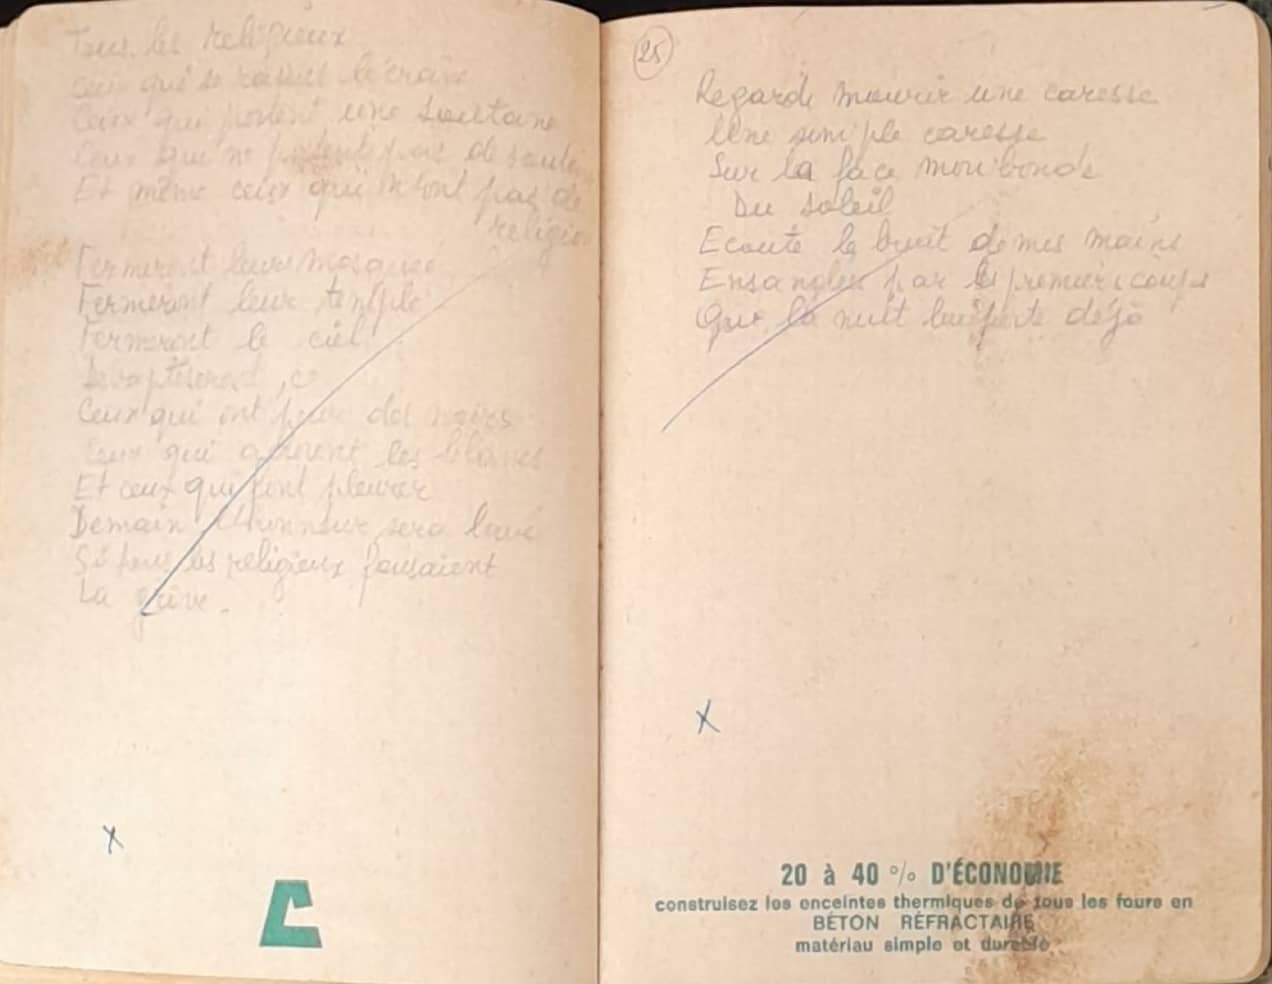 Tous les religieux
Ceux qui se rasent le crane
Ceux qui portent une soutane
Ceux qui ne portent pas de
Et même ceux qui n'ont pas de
religio
Fermeront leur mosquée
Fermeront leur temple
Fermeront le ciel
Ceux qui ont peur des noirs
Ceux qui les blancs
Et ceux qui font pleurer
Demain l'honneur sera lavé
Si tous les religieux fousaient
La grève.
X
C
25
Regarde mourir une caresse
Une simple caresse
Sur la face moribonde
Du soleil
Ecoute le bruit de mes mains
par les premiers coups
Que la nuit lui porte déjà
X
20 à 40 % D'ÉCONOMIE
construisez les enceintes thermiques de tous les fours en
BÉTON RÉFRACTAIRE
matériau simple et durable